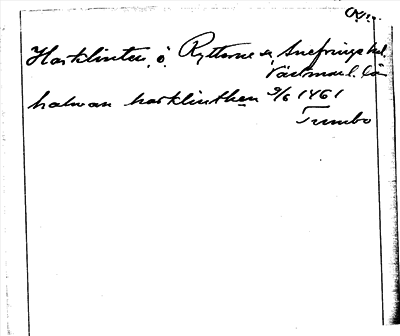 Harklinten, ö. Rytterne sn Snefringe hd.
Västmanl. län
halwan harklinthen 9/6 1461
Tumbo